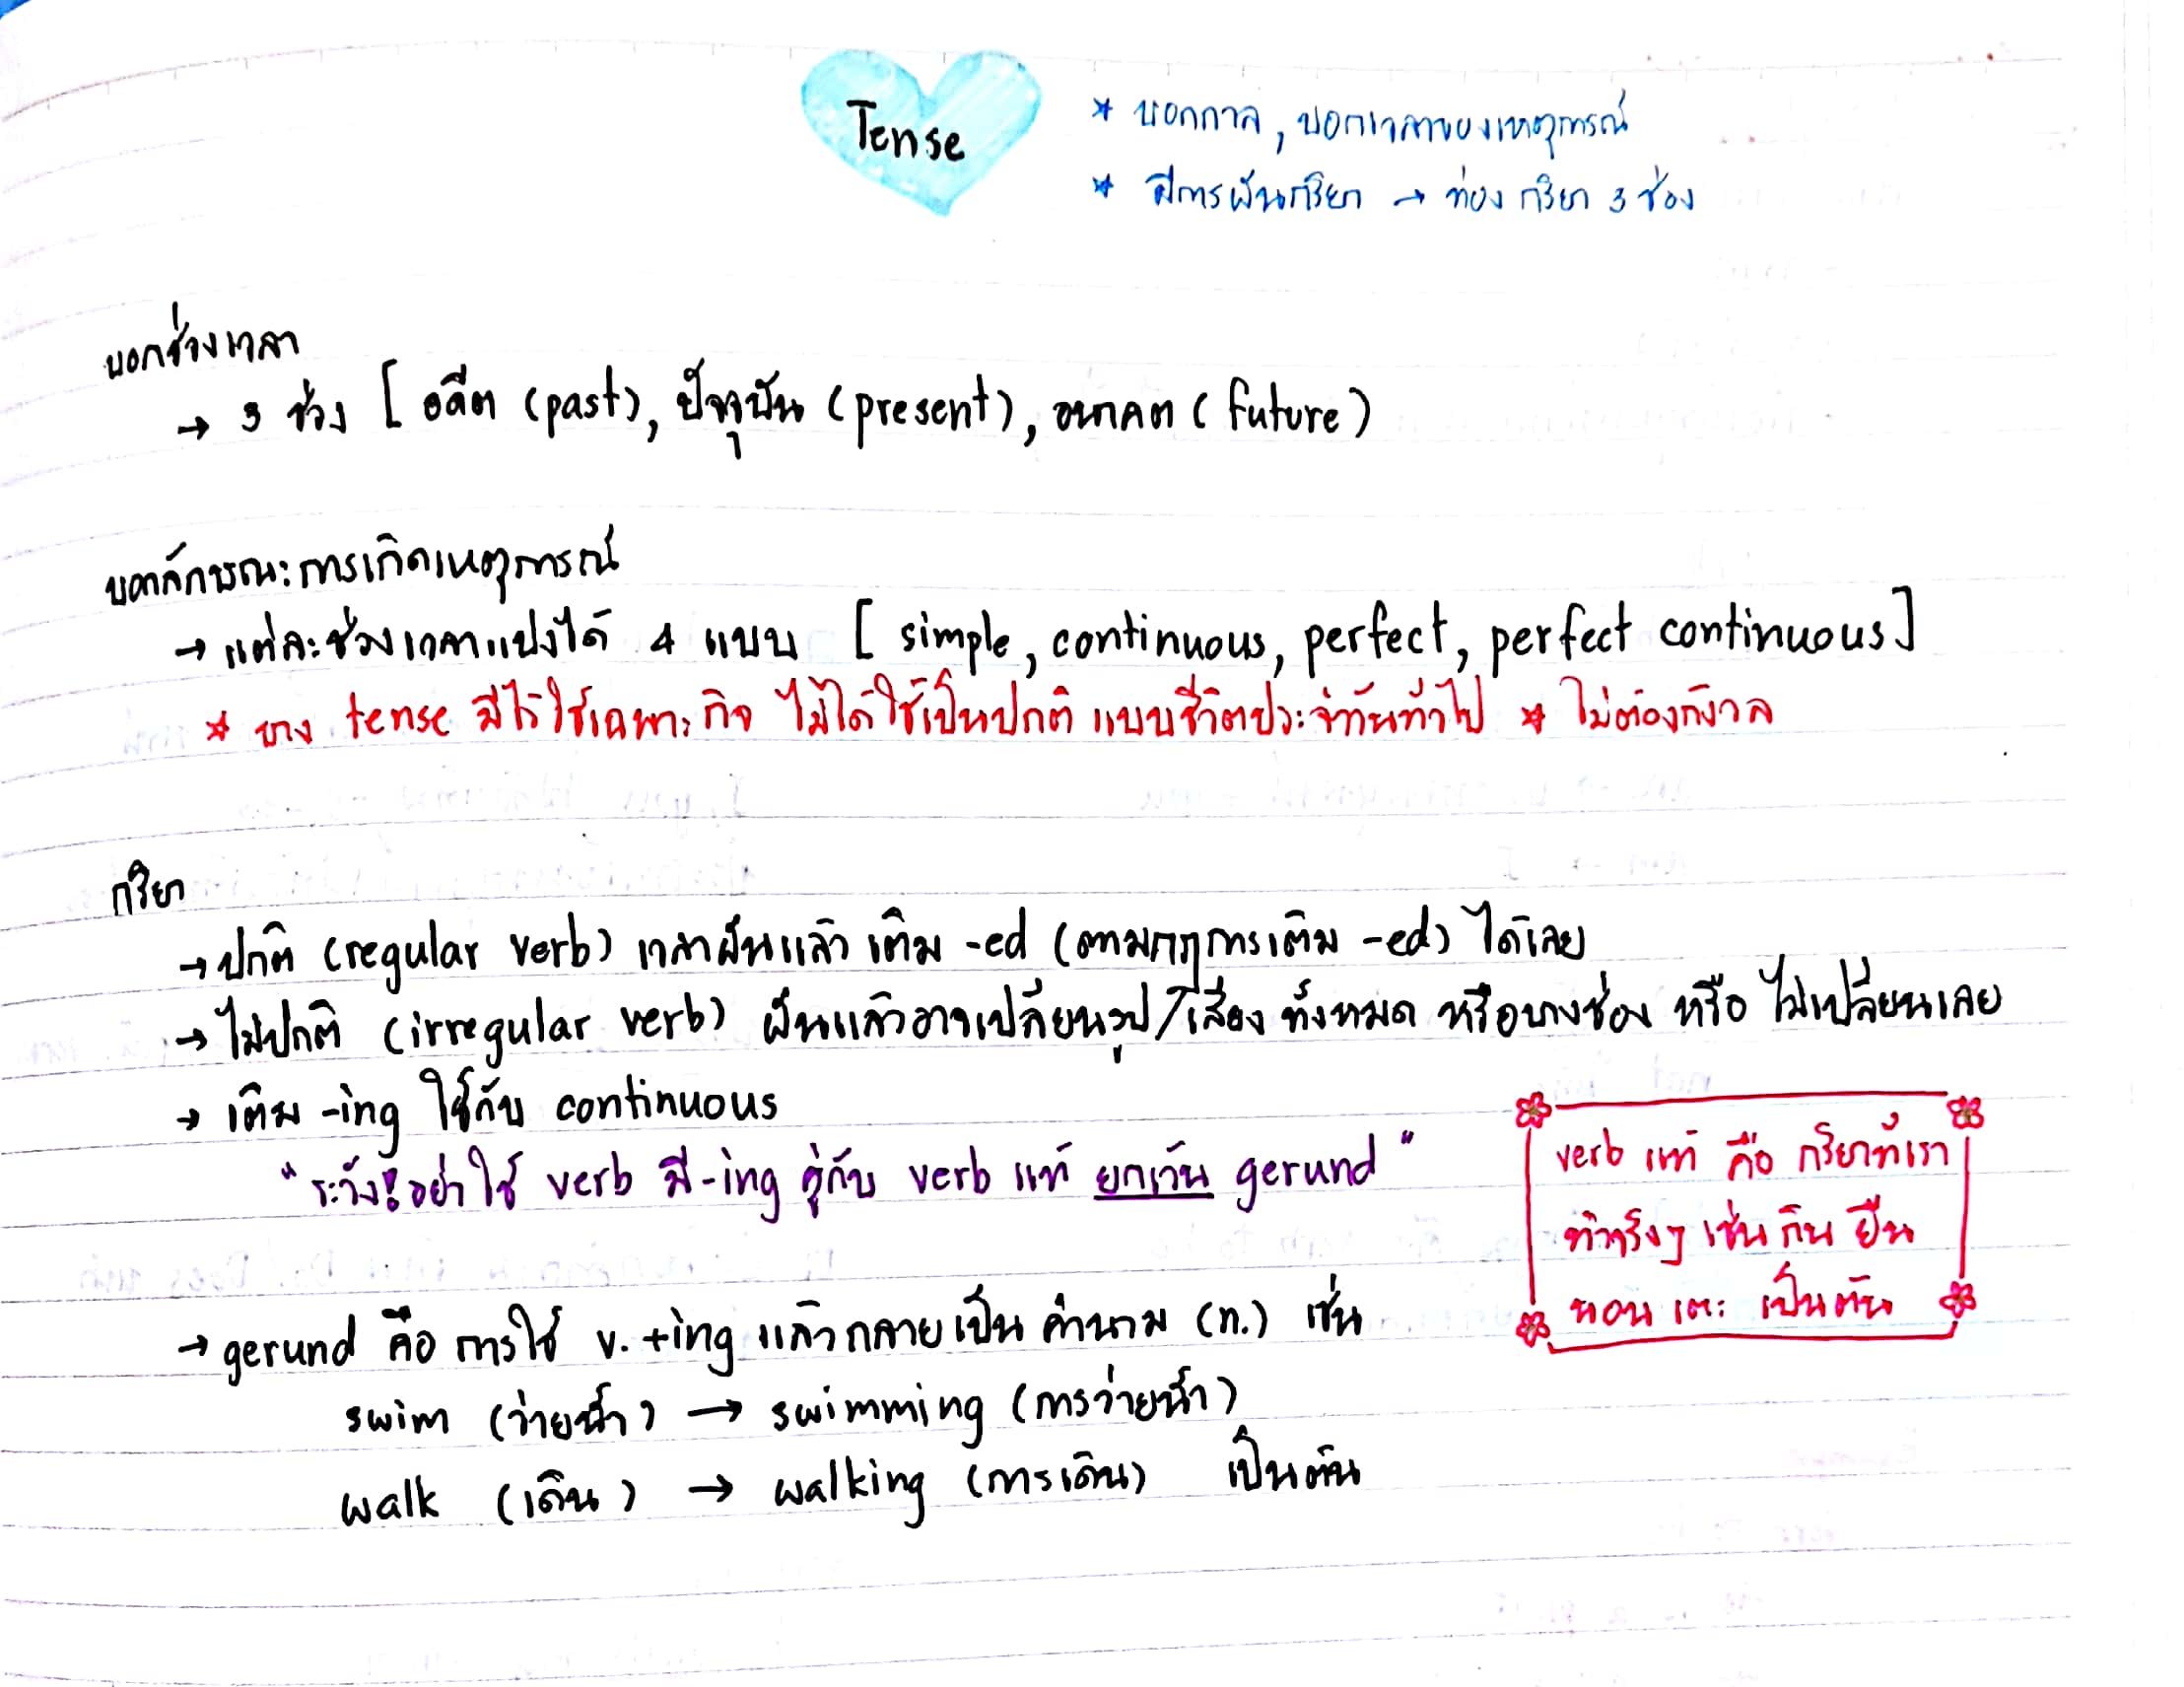 Tense
* บอกกาล, บอกเวลาของเหตุการณ์
* มีการผันกริยา → ท่อง กริยา 3 ช่อง
บอกช่วงเวลา
→ 3 ช่วง [ อดีต (past), ปัจจุบัน (present), อนาคต (future)
บอกลักษณะการเกิดเหตุการณ์
→ แต่ละช่วงเวลาแบ่งได้ 4 แบบ [ simple, continuous, perfect, perfect continuous]
* บาง tense มีไว้ใช้เฉพาะกิจ ไม่ได้ใช้เป็นปกติ แบบชีวิตประจำวันทั่วไป * ไม่ต้องกังวล
กริยา
→ ปกติ (regular verb) เวลาผันแล้ว เติม -ed (ตามกฎการเติม -ed) ได้เลย
→ ไม่ปกติ (irregular verb) ผันแล้วอาจเปลี่ยนรูป/เสียง ทั้งหมด หรือบางช่อง หรือ ไม่เปลี่ยนเลย
→ เติม -ing ใช้กับ continuous
"ระวัง! อย่าใช้ verb มี -ing คู่กับ verb แท้ ยกเว้น gerund"
verb แท้ คือ กริยาที่เรา
ทำจริงๆ เช่น กิน ยืน
นอน เตะ เป็นต้น
→ gerund คือ การใช้ v. +ing แล้วกลายเป็น คำนาม (n.) เช่น
swim (ว่ายน้ำ) → swimming (การว่ายน้ำ)
walk (เดิน) → walking (การเดิน) เป็นต้น